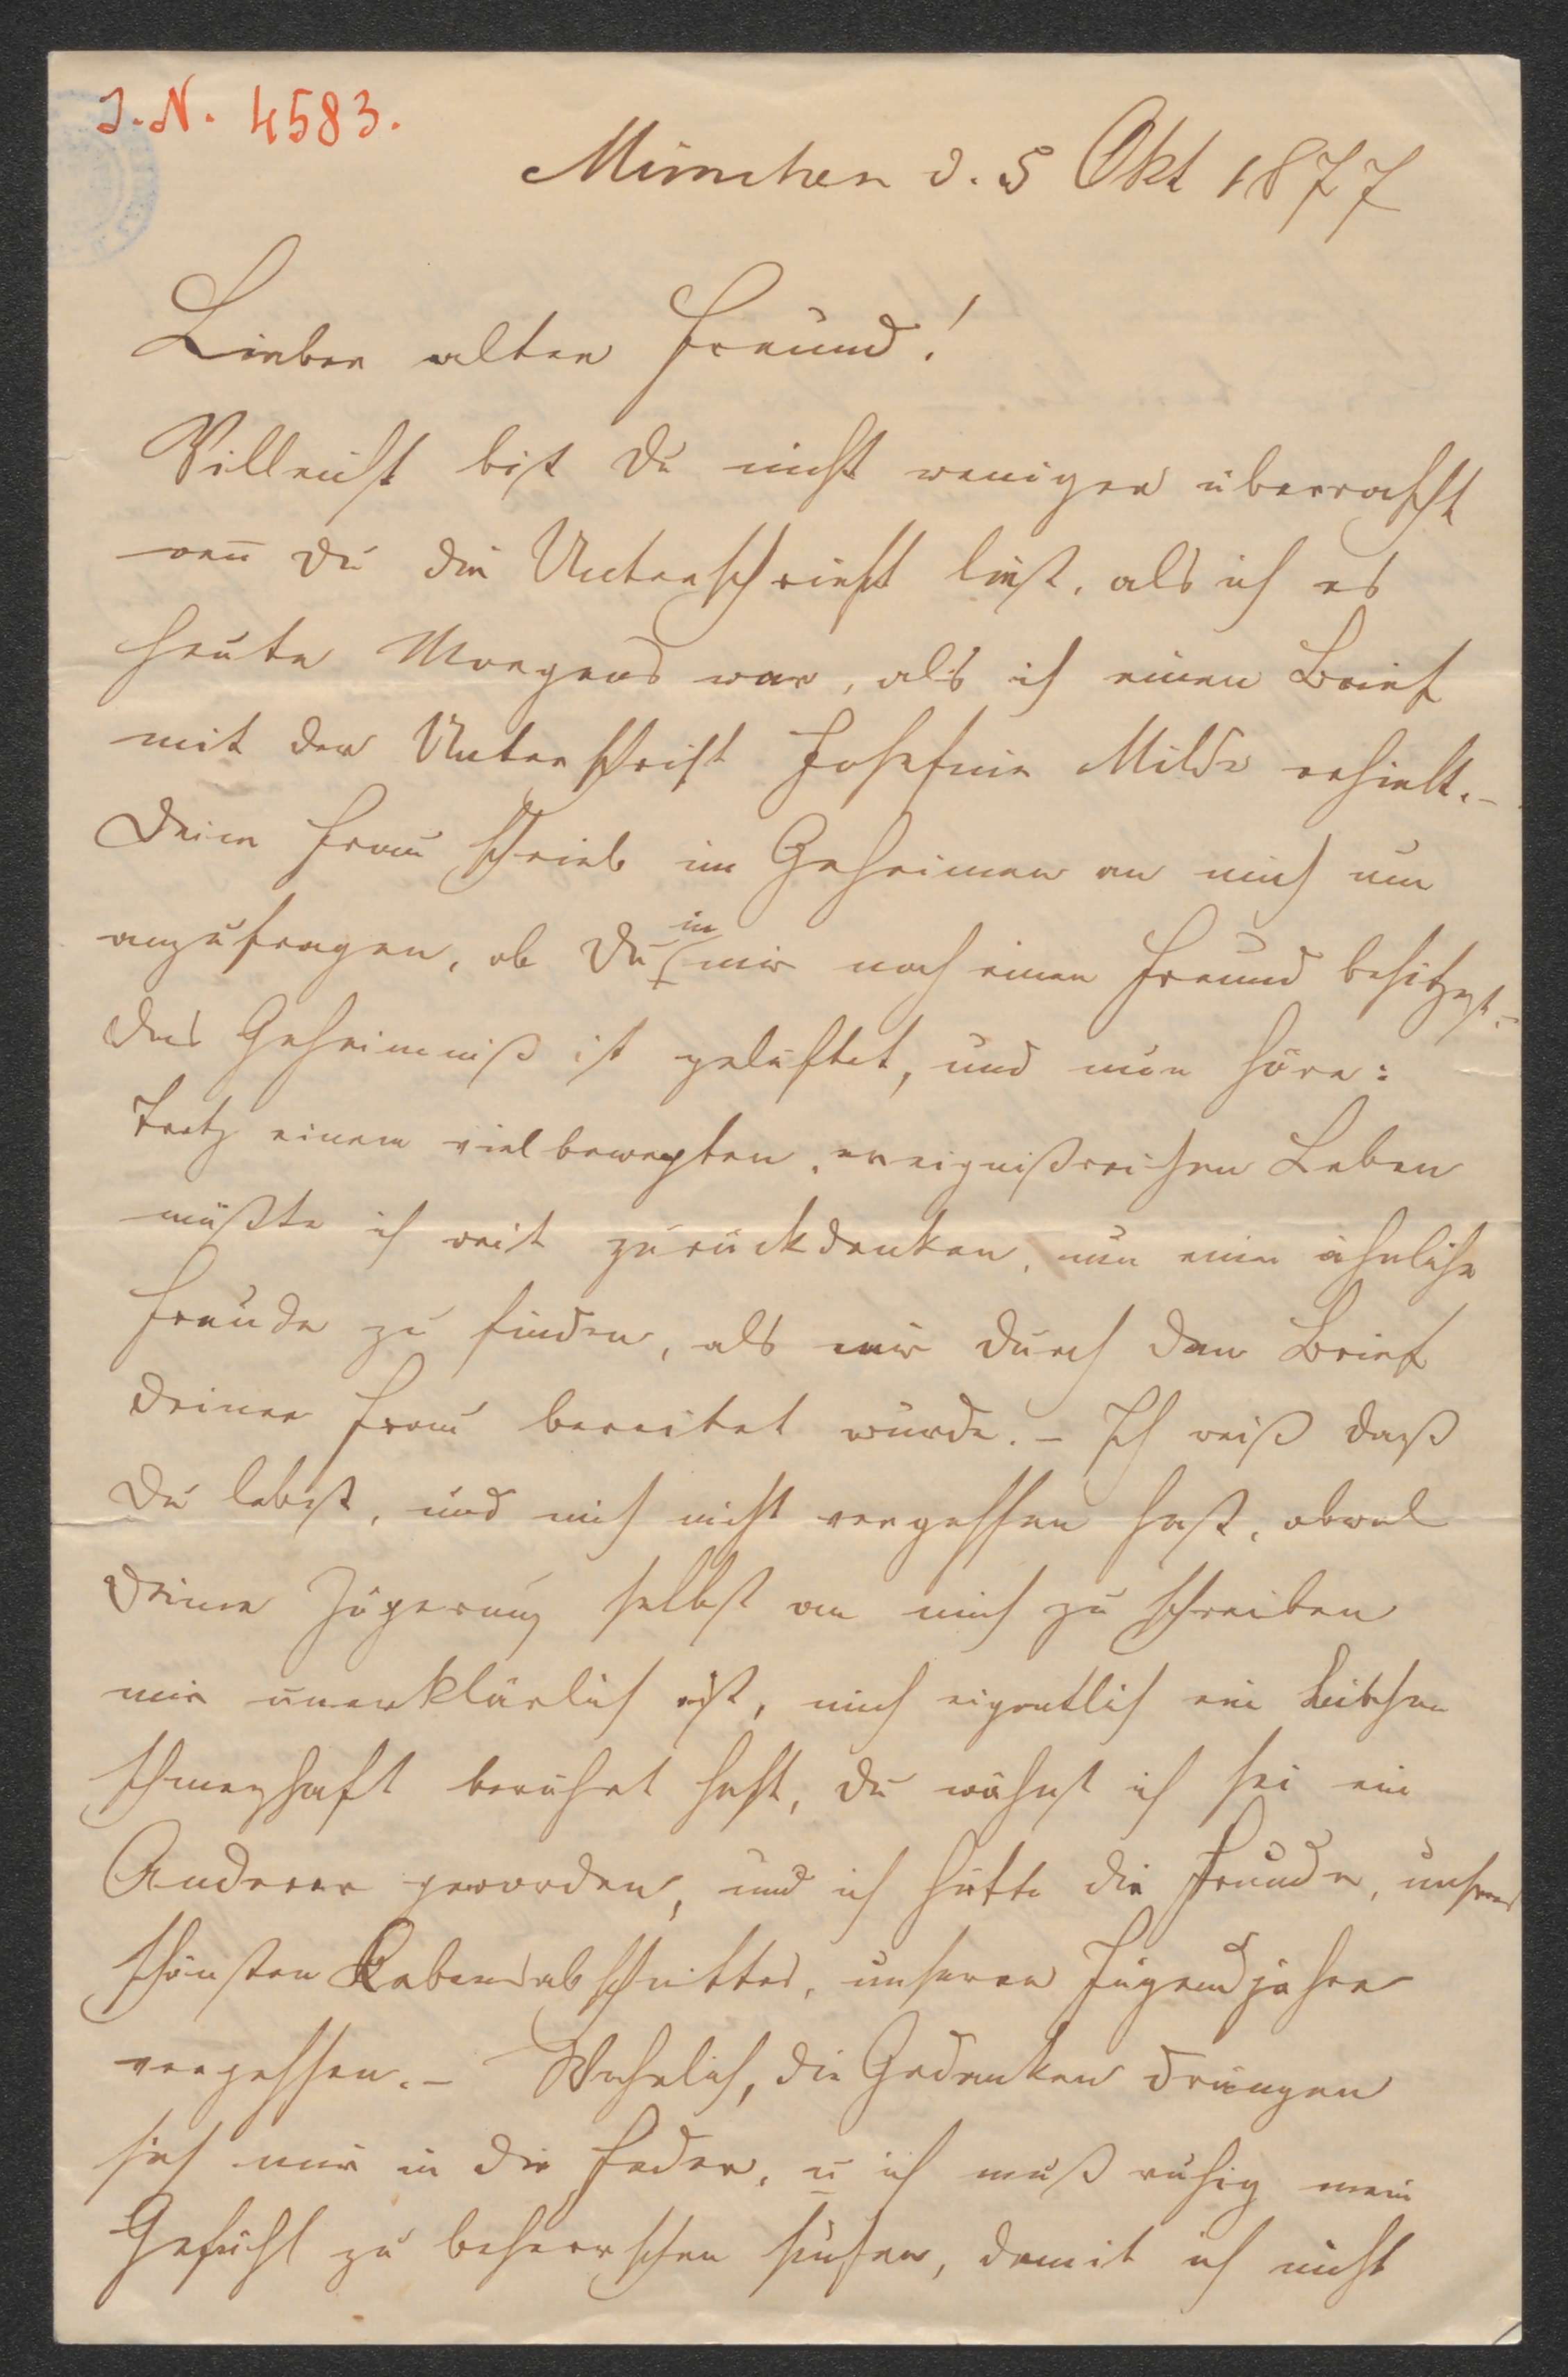 J.N. 4583.
München d. 5 Okt 1877
Lieber alter Freund!
Villeicht bist Du nicht weniger überrascht
wen̄ Du die Unterschrieft liest, als ich es
heute Morgens war, als ich einen Brief
mit der Unterschrift Josefine Milde erhielt.–
Deine Frau schrieb im Geheimen an mich um
anzufragen, ob Du in mir noch einen Freund besitzest.–
Das Geheimniß ist gelüftet, und nun höre:
Trotz einem vielbewegten, ereignißreichen Leben
müßte ich weit zurückdenken, um eine ähnliche
Freude zu finden, als mir durch den Brief
Deiner Frau bereitet wurde.– Ich weiß daß
Du lebest, und mich nicht vergessen hast, obwol
Deine Zögerung selbst an mich zu schreiben
mir unerklärlich ist, mich eigentlich ein bischen
schmerzhaft berührt hast, Du wähnst ich sei ein
Anderer geworden, und ich hätte die Freunde, unseres
schönsten Lebensabschnittes, unserer Jugendjahre
vergessen.– Wahrlich, die Gedanken drängen
sich mir in die Feder, u ich muß ruhig mein
Gefühl zu beherrschen suchen, damit ich nicht